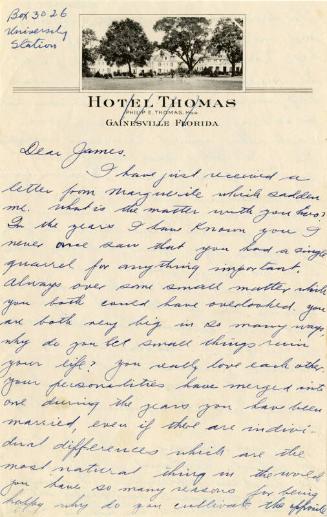 Box 3026
University
Station
HOTEL THOMAS
PHILIP E. THOMAS, MGR.
GAINESVILLE FLORIDA
Dear James,
I have just received a
letter from Marguerite which sadden
me. What is the matter with you two?
In the years I have known you I
never once saw that you had a single
quarrel for anything important.
Always over some small matter which
you both could have overlooked. You
are both very big in so many ways
why do you let small things ruin
your life? You really love each other.
Your personalities have merged into
one during the years you have been
married, even if there are indivi-
dual differences which are the
most natural thing in the world.
You have so many reasons for being
happy why do you cultivate the opposite